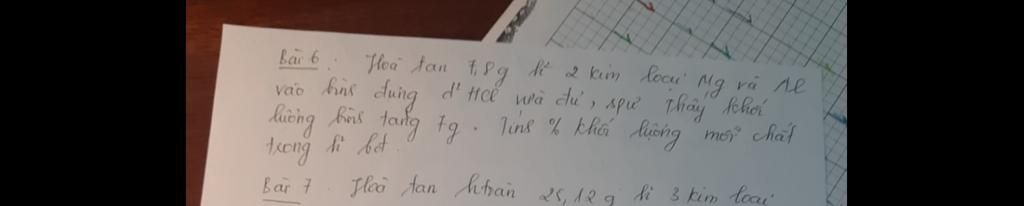 Bài 6. Hoà tan 7,8g h² 2 kim loại Mg và Al
vào bình đựng d² HCl vừa đủ, spư thấy khối
lượng bình tăng 7g. Tính % khối lượng mỗi chất
trong h² bđ.
Bài 7. Hoà tan htoàn 25,12g h² 3 kim loại